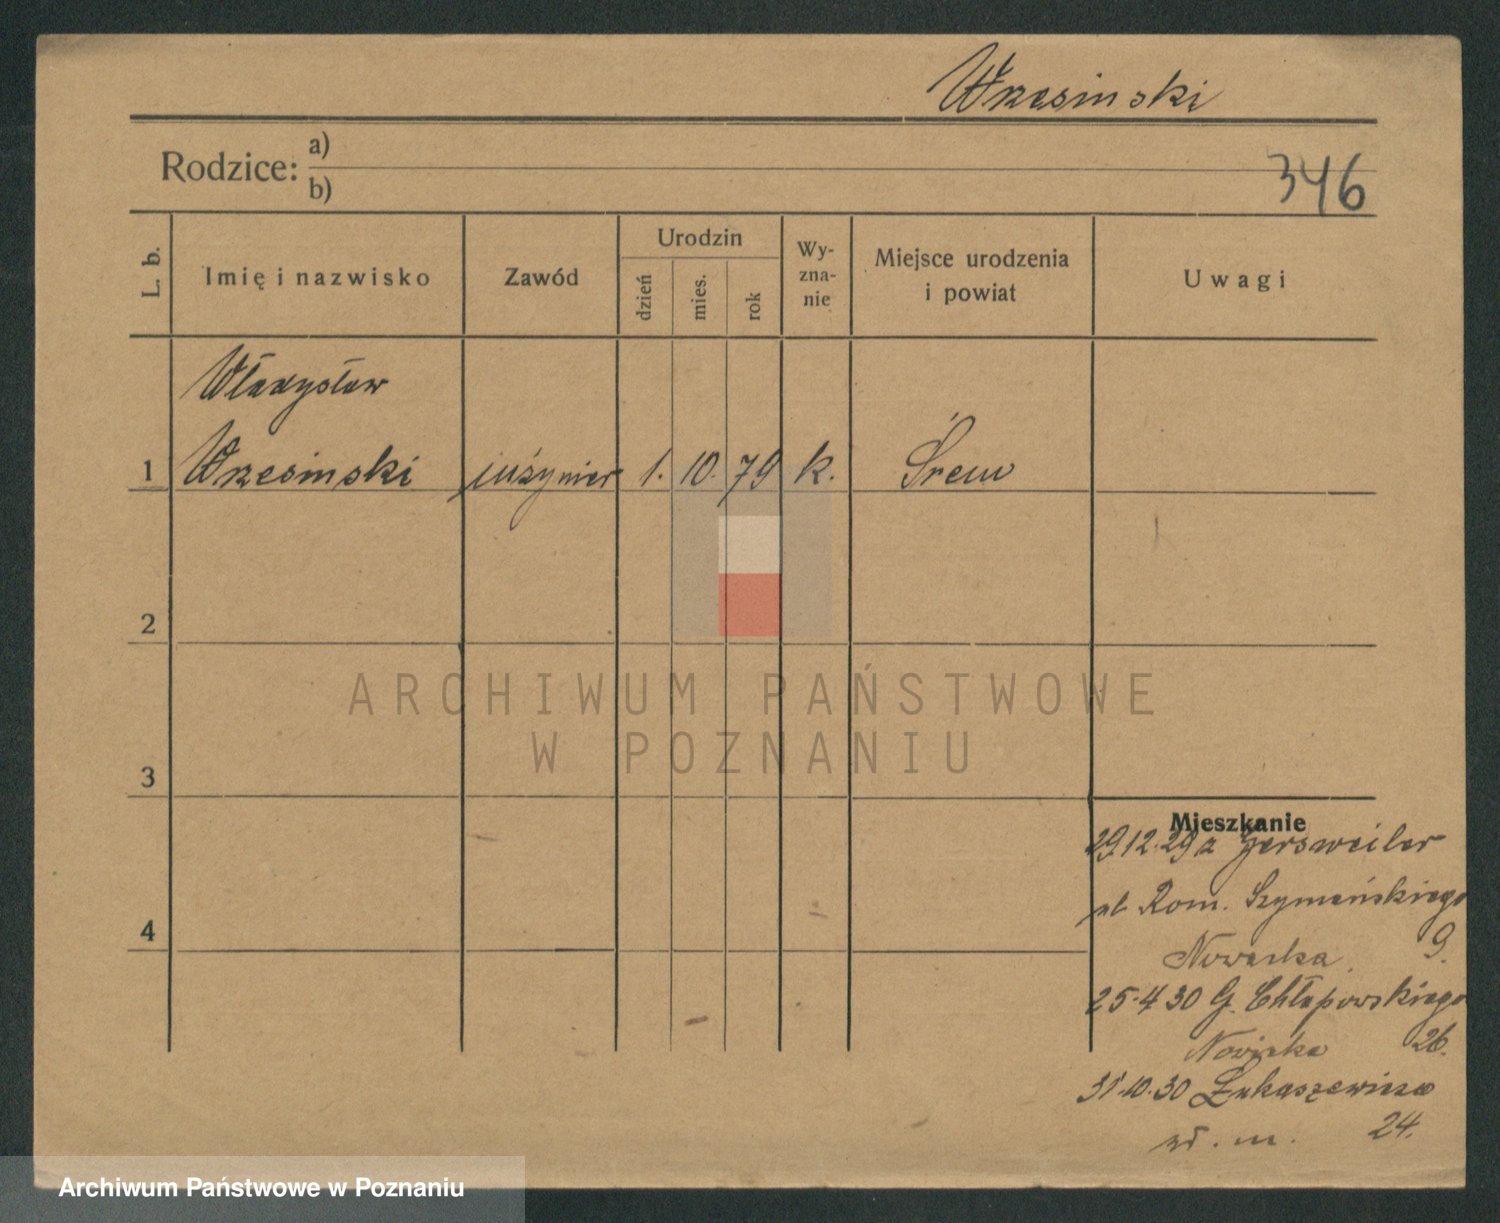 Wrzesinski
Rodzice: a)
b)
346
L. b.
Imię i nazwisko
Zawód
Urodzin
dzień
mies.
rok
Wy-
zna-
nie
Miejsce urodzenia
i powiat
Uwagi
Władysław
1 Wrzesinski inżynier 1. 10. 79 k. Śrem
2
3
4
ARCHIWUM PAŃSTWOWE
W POZNANIU
Mieszkanie
29.12.29 z Gersweiler
ul Rom. Szymańskiego
9.
25.4 30 G. Chłapowskiego
26.
31.10.30 Łukaszewicza
24.
Archiwum Państwowe w Poznaniu